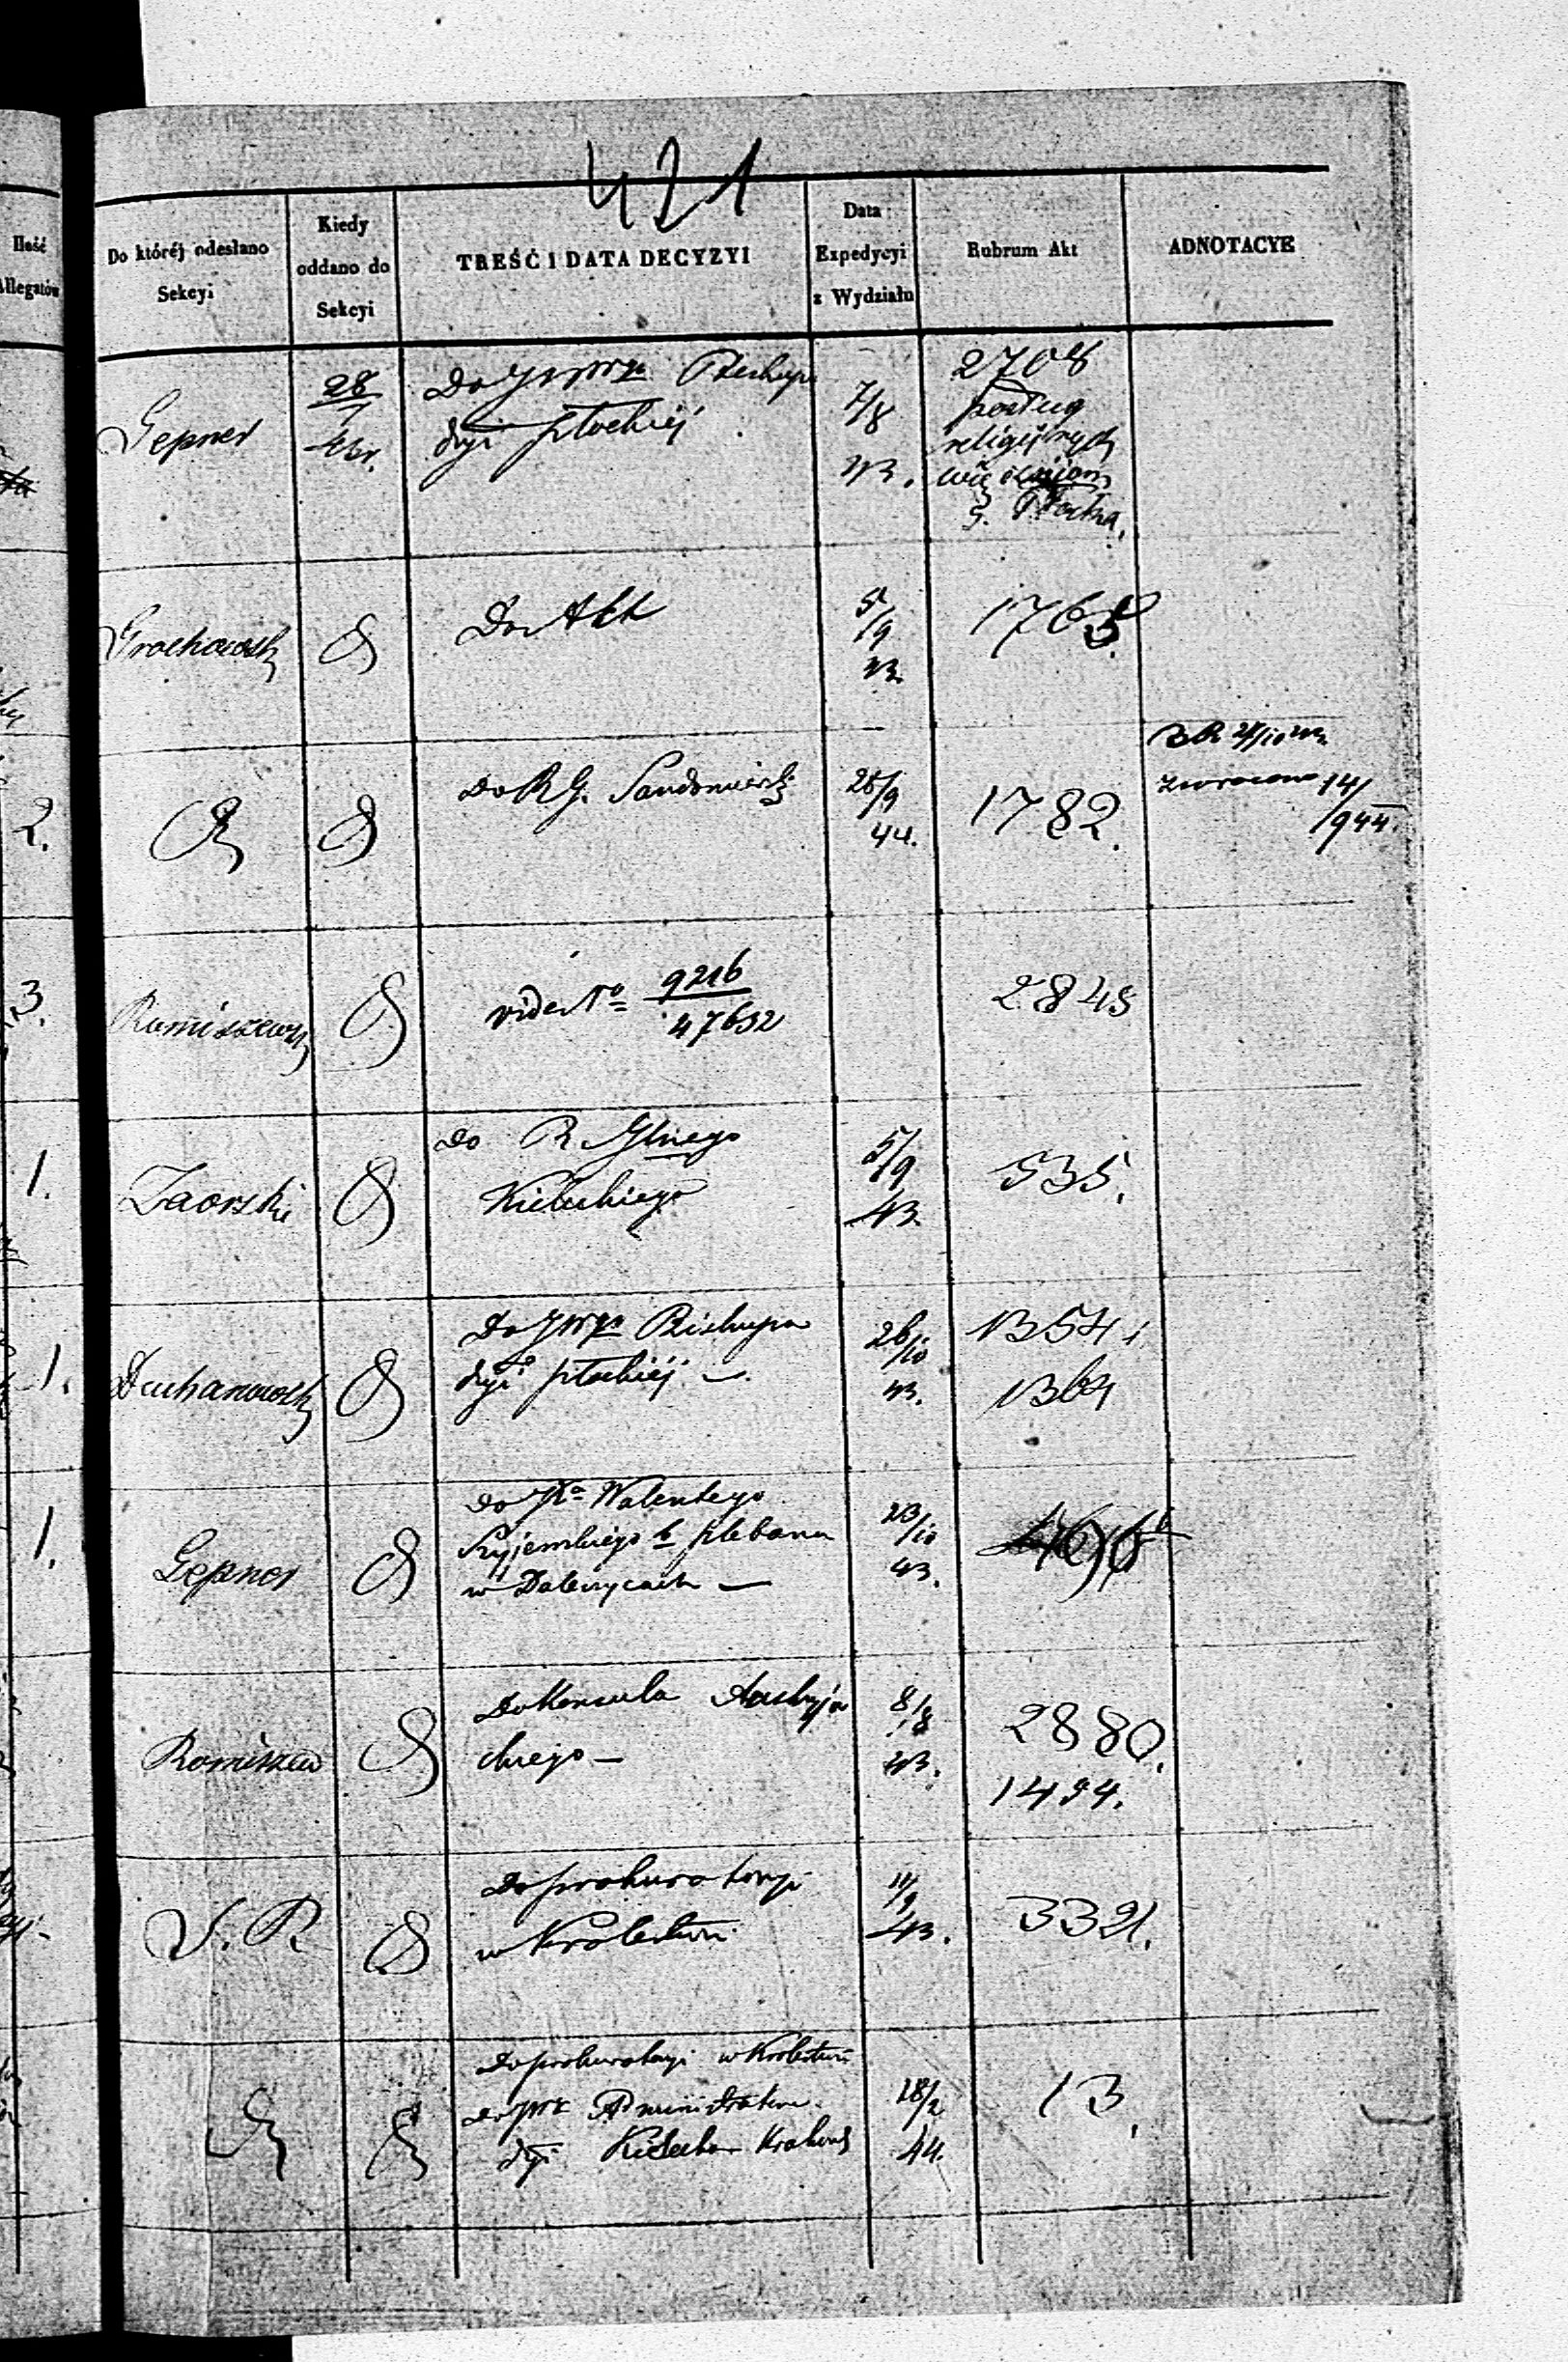 421
Ilość
Allegatów
Do któréj odesłano
Sekcyi
Kiedy
oddano do
Sekcyi
TREŚĆ I DATA DECYZYI
Data
Expedycyi
z Wydziału
Rubrum Akt
ADNOTACYE
Gepner
28
7
43r.
Do JWgo Biskupa
dyi płockiej
7/8
43.
2708
posług
religijnych
więźniom
g. Płocka.
Grochowsk
Do Akt
5/9
43.
1765
2.
Do R G. Sandomiersk
25/9
44.
1782.
zwrocono 14/
944.
3.
Romiszews
vide No 9216
47652
2845
1.
Zaorski
do R. Glnego
Kieleckiego
5/9
43.
535.
1.
Duchanowsk
Do JWgo Biskupa
dyi płockiej —
26/10
43.
1354 i
1364
1.
Gepner
do JKo Walentego
Szyjemskiego b plebana
w Daleszycach —
23/10
43.
Romiszew
Do Konsula Austryja
ckiego —
8/8
43.
2880.
1494.
V. R
Do prokuratoryi
w Królestwie
11/9
43.
3321.
Do prokuratoryi w Królestwie
do JWX Administratora
dyi Kielecko Krakows
18/2
44.
13.